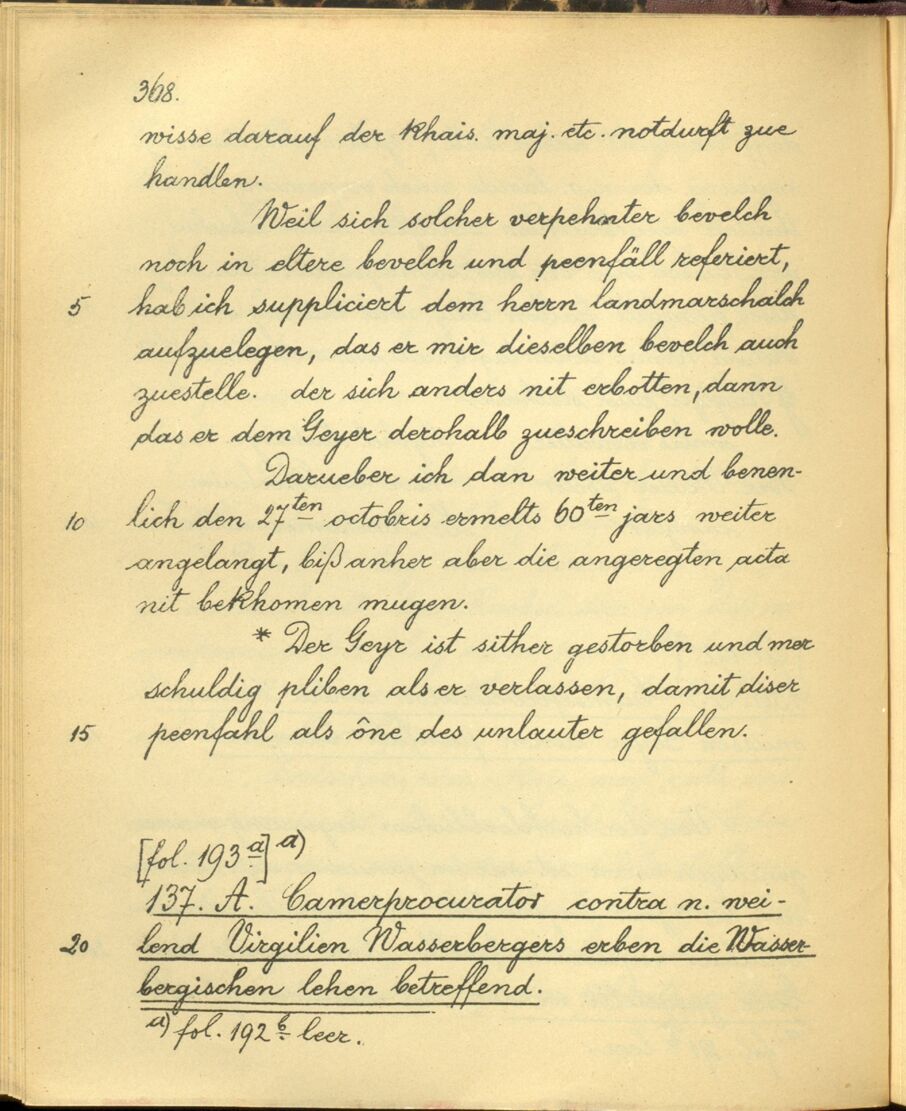 368.
wisse darauf der Khais. maj. etc. notdurft zue
handlen.
Weil sich solcher verpehnter bevelch
noch in eltere bevelch und peenfäll referiert,
5 hab ich suppliciert dem herrn landmarschalch
aufzuelegen, das er mir dieselben bevelch auch
zuestelle. der sich anders nit erbotten, dann
das er dem Geyer derohalb zueschreiben wolle.
Darueber ich dan weiter und benen-
10 lich den 27ten octobris ermelts 60ten jars weiter
angelangt, biß anher aber die angeregten acta
nit bekhomen mugen.
* Der Geyr ist sither gestorben und mer
schuldig pliben als er verlassen, damit diser
15 peenfahl alsône des unlauter gefallen.
[fol. 193a] a)
137. A. Camerprocurator contra n. wei-
20 lend Virgilien Wasserbergers erben die Wasser-
bergischen lehen betreffend.
a) fol. 192b leer.